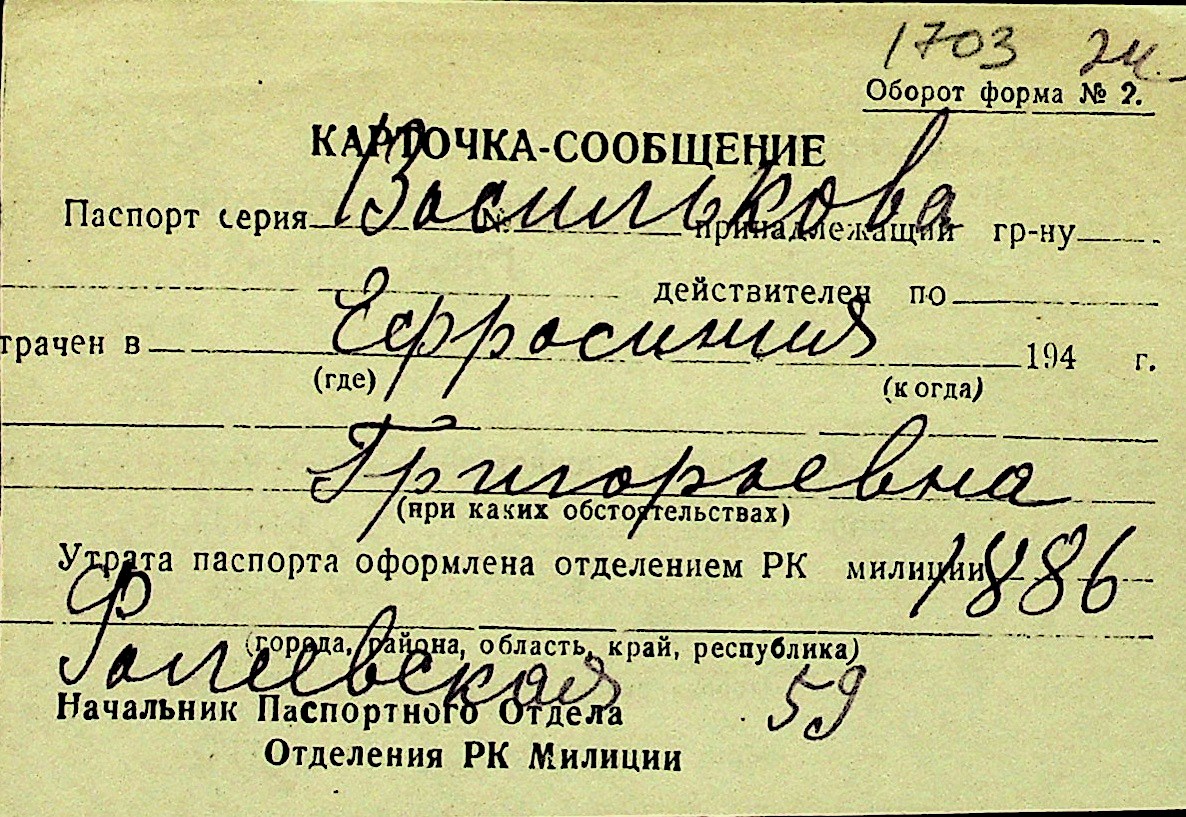 1703 2и.
Оборот форма № 2.
КАРТОЧКА-СООБЩЕНИЕ
Василькова
Паспорт серия № принадлежащий гр-ну
действителен по
Ефросиния
трачен в 194 г.
(где) (когда)
Григорьевна
(при каких обстоятельствах)
Утрата паспорта оформлена отделением РК милиции
1886
(города, района, область, край, республика)
59
Начальник Паспортного Отдела
Отделения РК Милиции